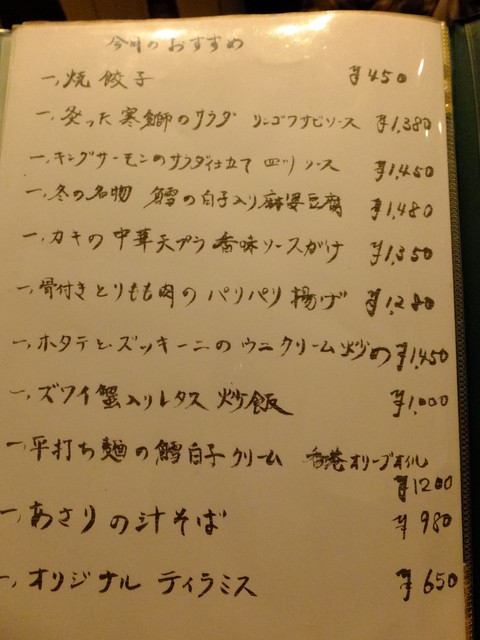 今月のおすすめ
一、焼餃子 ¥450
一、炙った寒鰤のサラダ リンゴワサビソース ¥1,380
一、キングサーモンのサラダ仕立て 四川ソース ¥1,450
一、冬の名物 鱈の白子入り麻婆豆腐 ¥1,480
一、カキの中華天プラ 香味ソースがけ ¥1,350
一、骨付きとりもも肉のパリパリ揚げ ¥1,280
一、ホタテとズッキーニのウニクリーム炒め ¥1,450
一、ズワイ蟹入りレタス炒飯 ¥1,000
一、平打ち麺の鱈白子クリーム 香港オリーブオイル
¥1200
一、あさりの汁そば ¥980
一、オリジナルティラミス ¥650